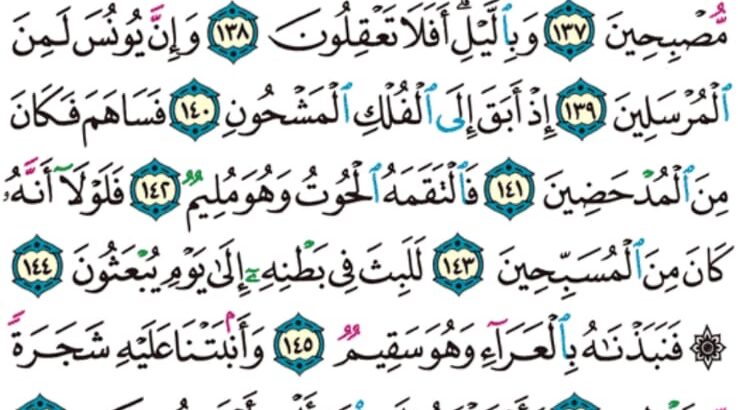 مُّصْبِحِينَ ١٣٧ وَبِٱلَّيْلِۗ أَفَلَا تَعْقِلُونَ ١٣٨ وَإِنَّ يُونُسَ لَمِنَ
ٱلْمُرْسَلِينَ ١٣٩ إِذْ أَبَقَ إِلَى ٱلْفُلْكِ ٱلْمَشْحُونِ ١٤٠ فَسَاهَمَ فَكَانَ
مِنَ ٱلْمُدْحَضِينَ ١٤١ فَٱلْتَقَمَهُ ٱلْحُوتُ وَهُوَ مُلِيمٌ ١٤٢ فَلَوْلَآ أَنَّهُۥ
كَانَ مِنَ ٱلْمُسَبِّحِينَ ١٤٣ لَلَبِثَ فِى بَطْنِهِۦٓ إِلَىٰ يَوْمِ يُبْعَثُونَ ١٤٤
۞ فَنَبَذْنَٰهُ بِٱلْعَرَآءِ وَهُوَ سَقِيمٌ ١٤٥ وَأَنۢبَتْنَا عَلَيْهِ شَجَرَةً